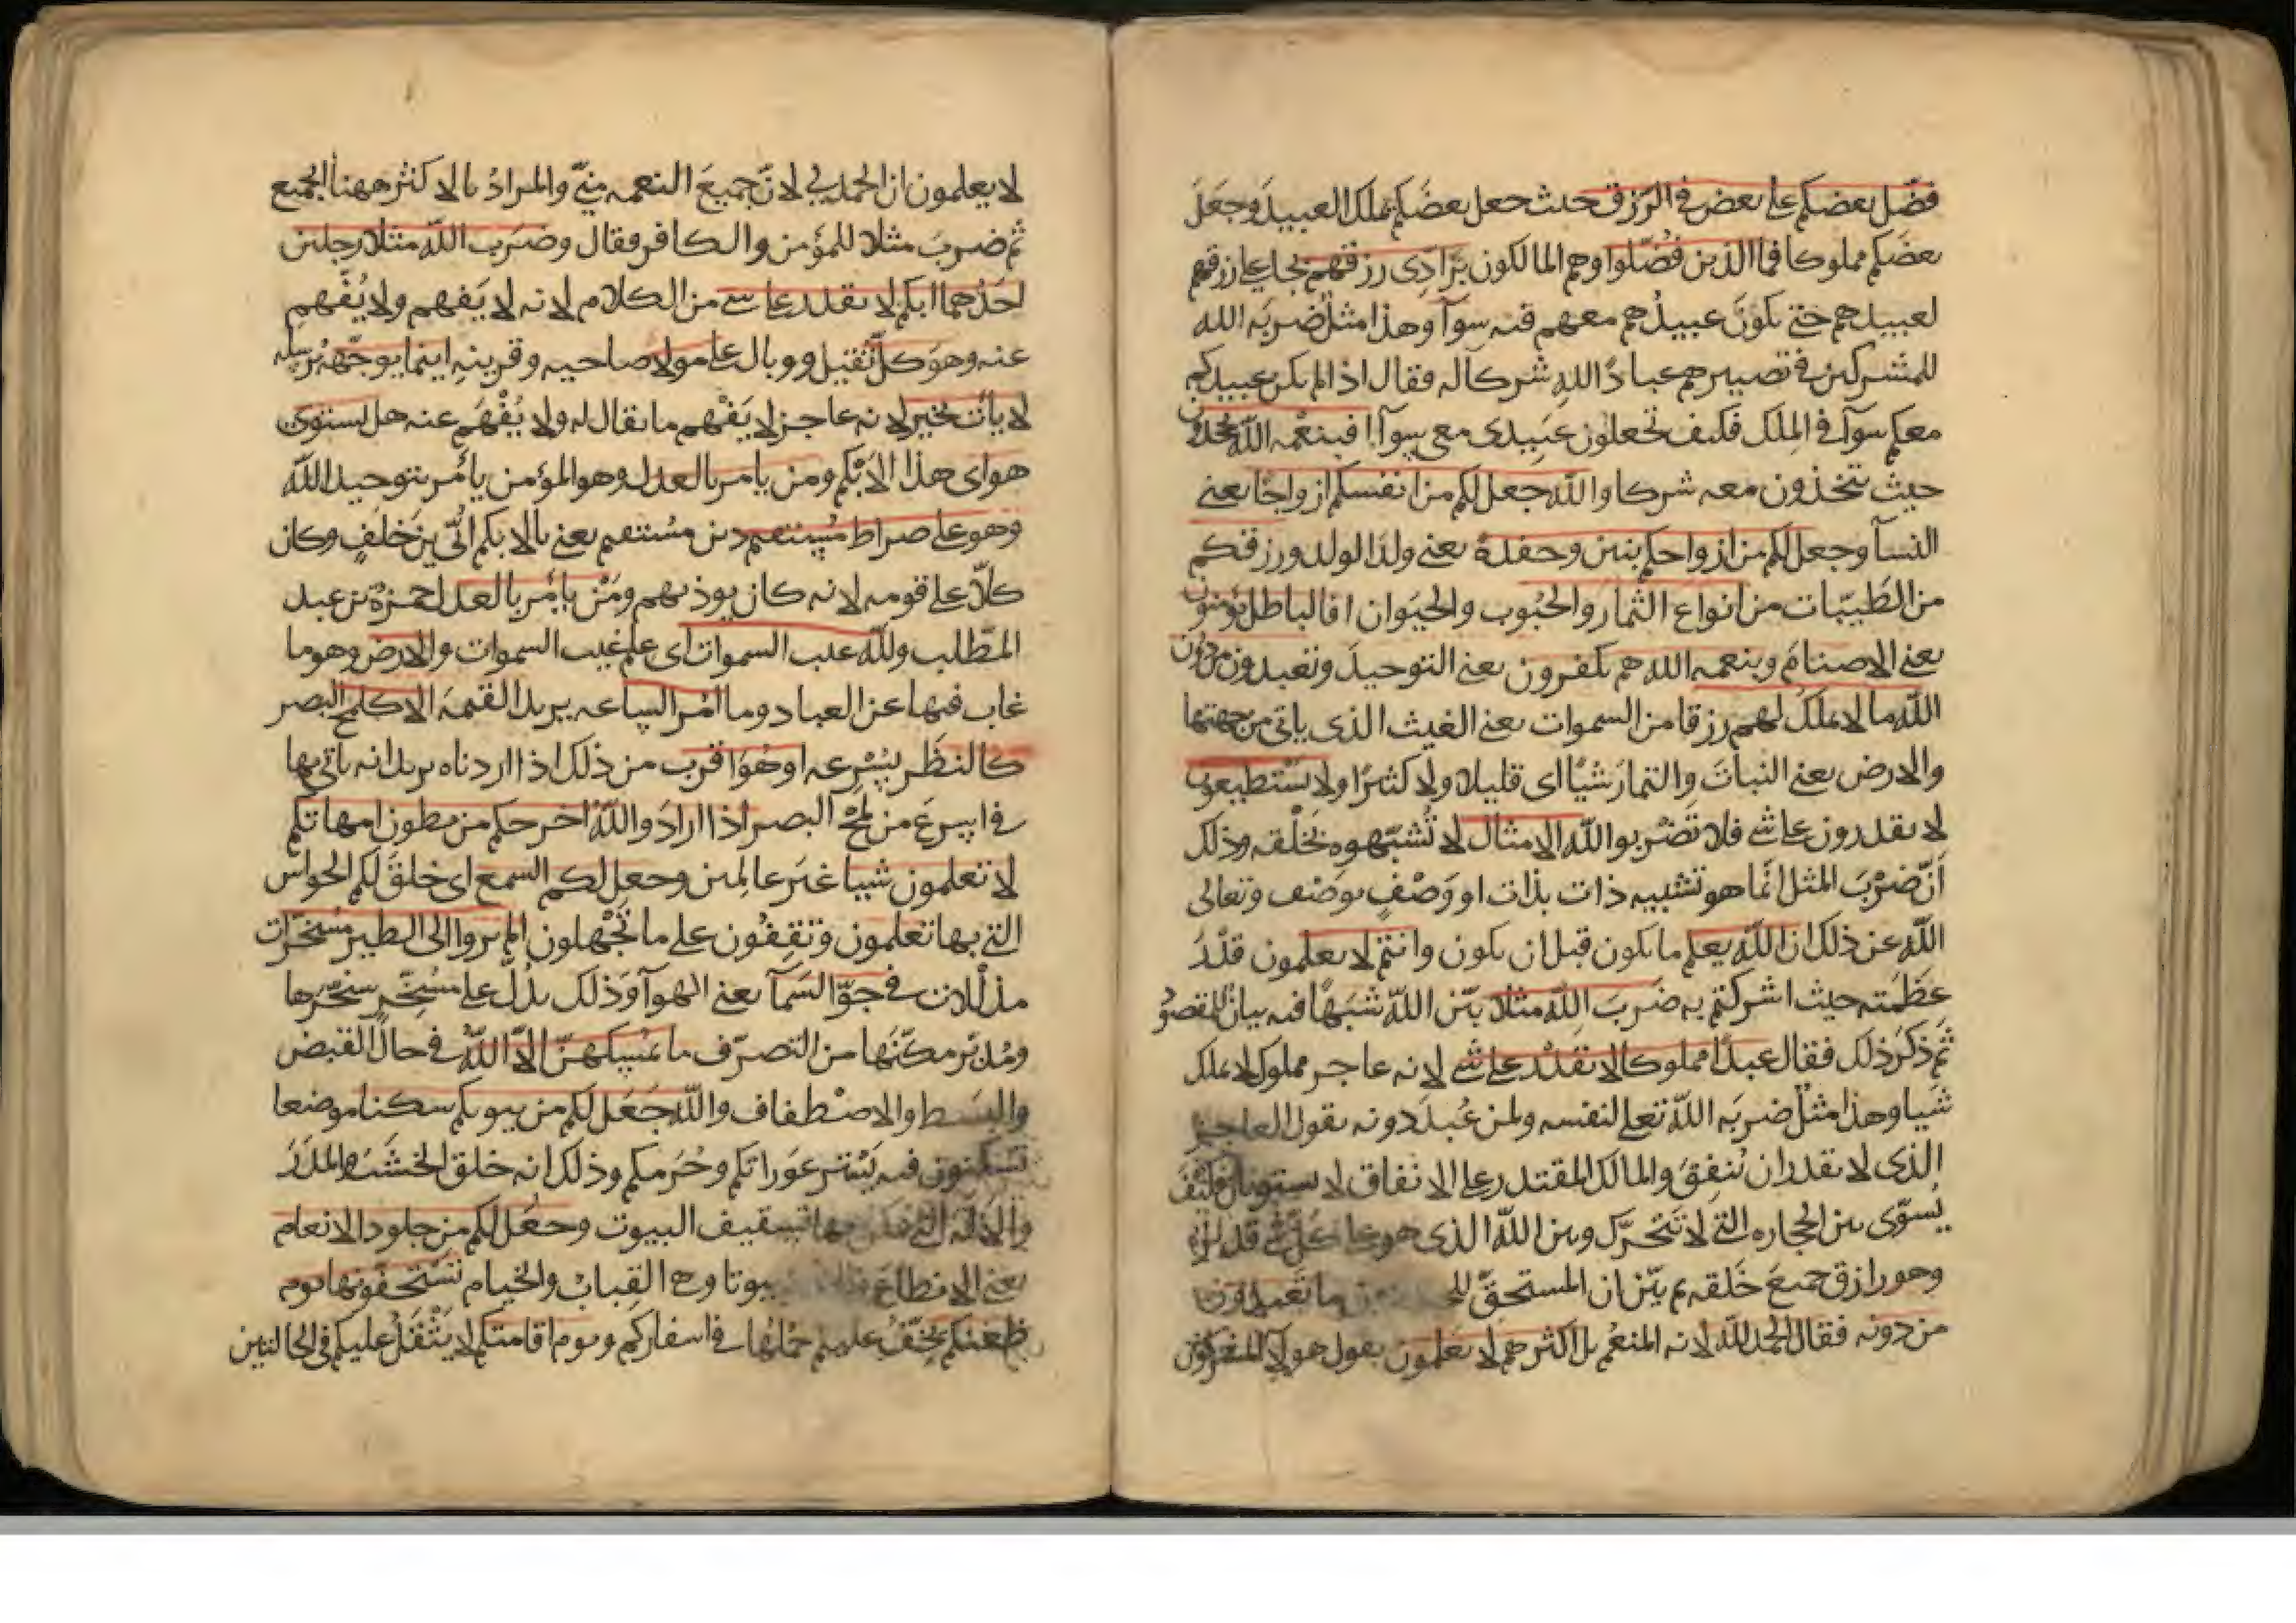 فضّل بعضكم على بعض في الرزق حيث جعل بعضكم يملك العبيد وجعل
بعضكم مملوكا فما الذين فضّلوا وهم المالكون برادّى رزقهم بجاعلى رزقهم
لعبيدهم حتى يكون عبيدهم معهم فيه سوآ وهذا مثل ضربه الله
للمشركين في تصييرهم عباد الله شركا له فقال اذا لم يكن عبيدكم
معكم سوآ في الملك فكيف تجعلون عبيدى معى سوآ افبنعمه الله يجحدون
حيث يتخذون معه شركا والله جعل لكم من انفسكم ازواجا يعنى
النسآ وجعل لكم من ازواجكم بنين وحفدة يعنى ولد الولد ورزقكم
من الطيبات من انواع الثمار والحبوب والحيوان افالباطل يومنون
يعنى الاصنام وبنعمه الله هم يكفرون يعنى التوحيد وتعبدون من دون
الله ما لا يملك لهم رزقا من السموات يعنى الغيث الذى ياتى من جهتها
والارض يعنى النبات والثمار شيًا اى قليلا ولا كثيرًا ولا يستطيعون
لا يقدرون على شى فلا تضربوا لله الامثال لا تشبّهوه بخلقه وذلك
انّ ضرب المثل انّما هو تشبيه ذات بذات او وصفٍ بوصف وتعالى
الله عن ذلك ان الله يعلم ما يكون قبل ان يكون وانتم لا يعلمون قدر
عظمته حيث اشركتم به ضرب الله مثلا بيّن الله شبهًا فيه بيان للمقصود
ثم ذكر ذلك فقال عبدًا مملوكا لا يقدر على شى لانه عاجز مملوك لا يملك
شيا وهذا مثلٌ ضربه الله تعلى لنفسه ولمن عُبد دونه يقول العاجز
الذى لا يقدر ان يُنفق والمالك المقتدر على الانفاق لا يستويان فكيف
يُسوّى بين الحجاره التى لا تتحرّك وبين الله الذى هو على كل شى قدير
وهو رازق جميع خلقه ثم بيّن ان المستحقّ ما تعبدون
من دونه فقال الحمد لله لانه المنعم بل اكثرهم لا يعلمون يقول هولآ المشركون
لا يعلمون ان الحمد لى لانّ جميعَ النعمه منىّ والمرادُ بالاكثر ههنا الجميع
ثم ضربَ مثلا للمؤمن والكافر فقال وضرب الله مثلا رجلين
احدُهما ابكم لا يقدر على شى من الكلام لانه لا يَفهم ولا يُفهم
عنه وهو كلّ ثقيل ووبال على مولاه صاحبه وقرينه اينما يوجّهه يرسله
لا يأت بخير لانه عاجز لا يَفْهم ما يقال له ولا يُفْهَم عنه هل يستوى
هو اى هذا الابكم ومن يامر بالعدل وهو المؤمن يأمر بتوحيد الله
وهو على صراط مستقيم دين مستقيم يعنى بالابكم اُبىّ بن خلفٍ وكان
كلّا على قومه لانه كان يوذيهم ومَنْ يأمر بالعدل حمزة بن عبد
المطلب ولله غيب السموات اى علم غيب السموات والارض وهو ما
غاب فيها عن العباد وما امر الساعه يريد القيمة الا كلمح البصر
كالنظَر بسُرعه او هو اقرب من ذلك اذا اردناه يريد انه ياتى بها
فى اسرع من لمح البصر اذا اراد والله اخرجكم من بطون امهاتكم
لا تعلمون شيا غير عالمين وجعل لكم السمع اى خلق لكم الحواس
التى بها تعلمون وتقفون على ما تجهلون الم يروا الى الطير مسخرات
مذللات فى جوّ السمآ يعنى الهوآ وَذلك يدل على مسخّرٍ سخّرها
ومُدبّر مكّنها من التصرّف ما يمسكهنّ الاّ الله فى حال القبض
والبسط والاصطفاف والله جَعَل لكم من بيوتكم سكنا موضعا
تسكنون فيه يستر عوراتكم وحُرمكم وذلك انه خلق الخشب والمدر
والآلة التى بها تسقيف البيوت وجعل لكم من جلود الانعام
يعنى الانطاع بيوتا وهى القباب والخيام تستخفونها يوم
ظعنكم يخفّ عليكم حملها فى اسفاركم ويوم اقامتكم لا يثقل عليكم فى الحالتين